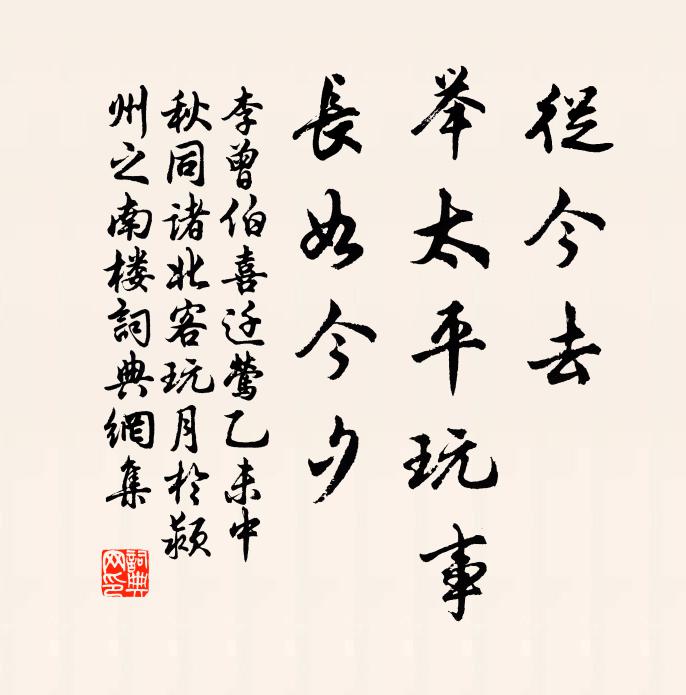 從今去
举太平玩事
長如今夕
李曾伯喜迁鶯乙未中
秋同諸北客玩月於颍
州之南楼詞典網集
詞典网印